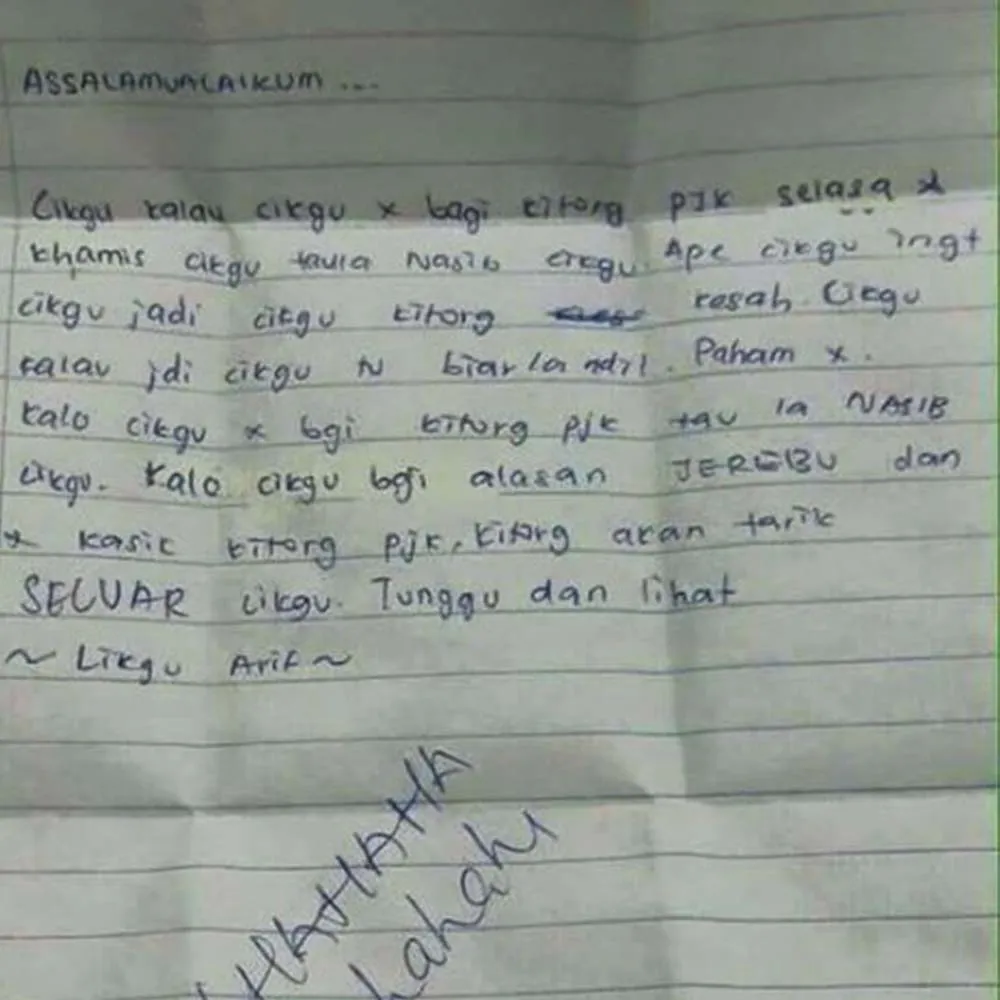 ASSALAMUALAIKUM ...
Cikgu kalau cikgu x bagi kitorg PJK selasa x
khamis cikgu taula Nasib cikgu. Ape cikgu ingt
cikgu jadi cikgu kitorg kesah. Cikgu
kalau jdi cikgu tu biar la adil. Paham x.
Kalo cikgu x bgi kitorg pjk tau la NASIB
cikgu. Kalo cikgu bgi alasan JEREBU dan
x kasik kitorg pjk, kitorg akan tarik
SELUAR cikgu. Tunggu dan lihat
~ Cikgu Arif ~
HAHAHAHA
hahaha